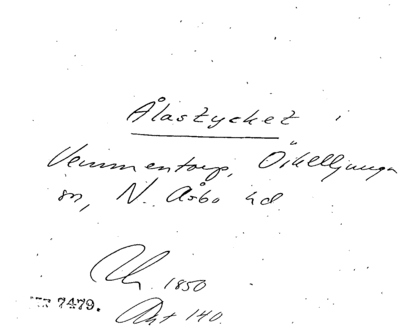 Ålastycket i
Vemmentorp, Örkelljunga
sn, N. Åsbo hd
1850
7479.
Akt 140.